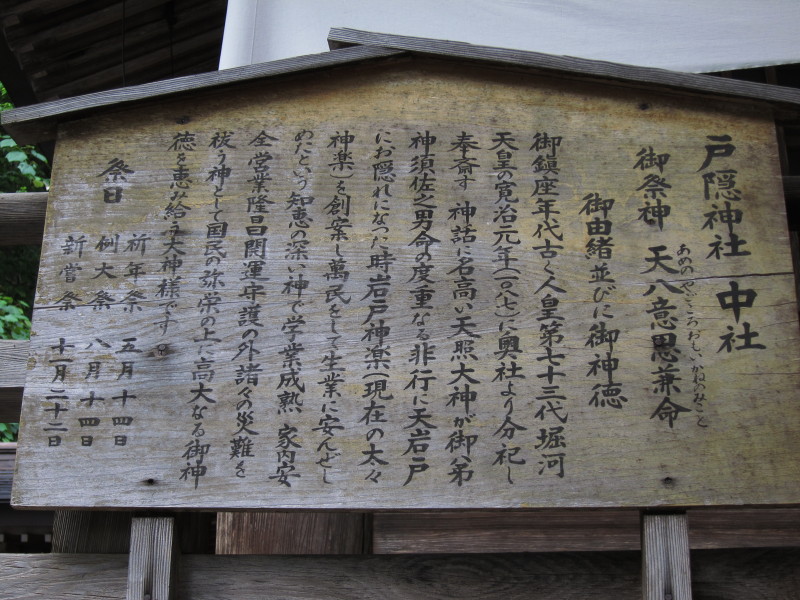 戸隠神社 中社
御祭神 天八意思兼命
あめのやごころおもいかねのみこと
御由緒並びに御神徳
御鎮座年代古く人皇第七十三代堀河
天皇の寛治元年(一〇八七)に奥社より分祀し
奉斎す 神話に名高い天照大神が御弟
神須佐之男命の度重なる非行に天岩戸
にお隠れになった時、岩戸神楽(現在の太々
神楽)を創案し萬民をして生業に安んぜし
めたという知恵の深い神で学業成熟 家内安
全 営業隆昌開運守護の外諸々の災難を
祓う神として国民の弥栄の上に高大なる御神
徳を恵み給う大神様です。
祭日
祈年祭 五月十四日
例大祭 八月十四日
新嘗祭 十一月二十二日